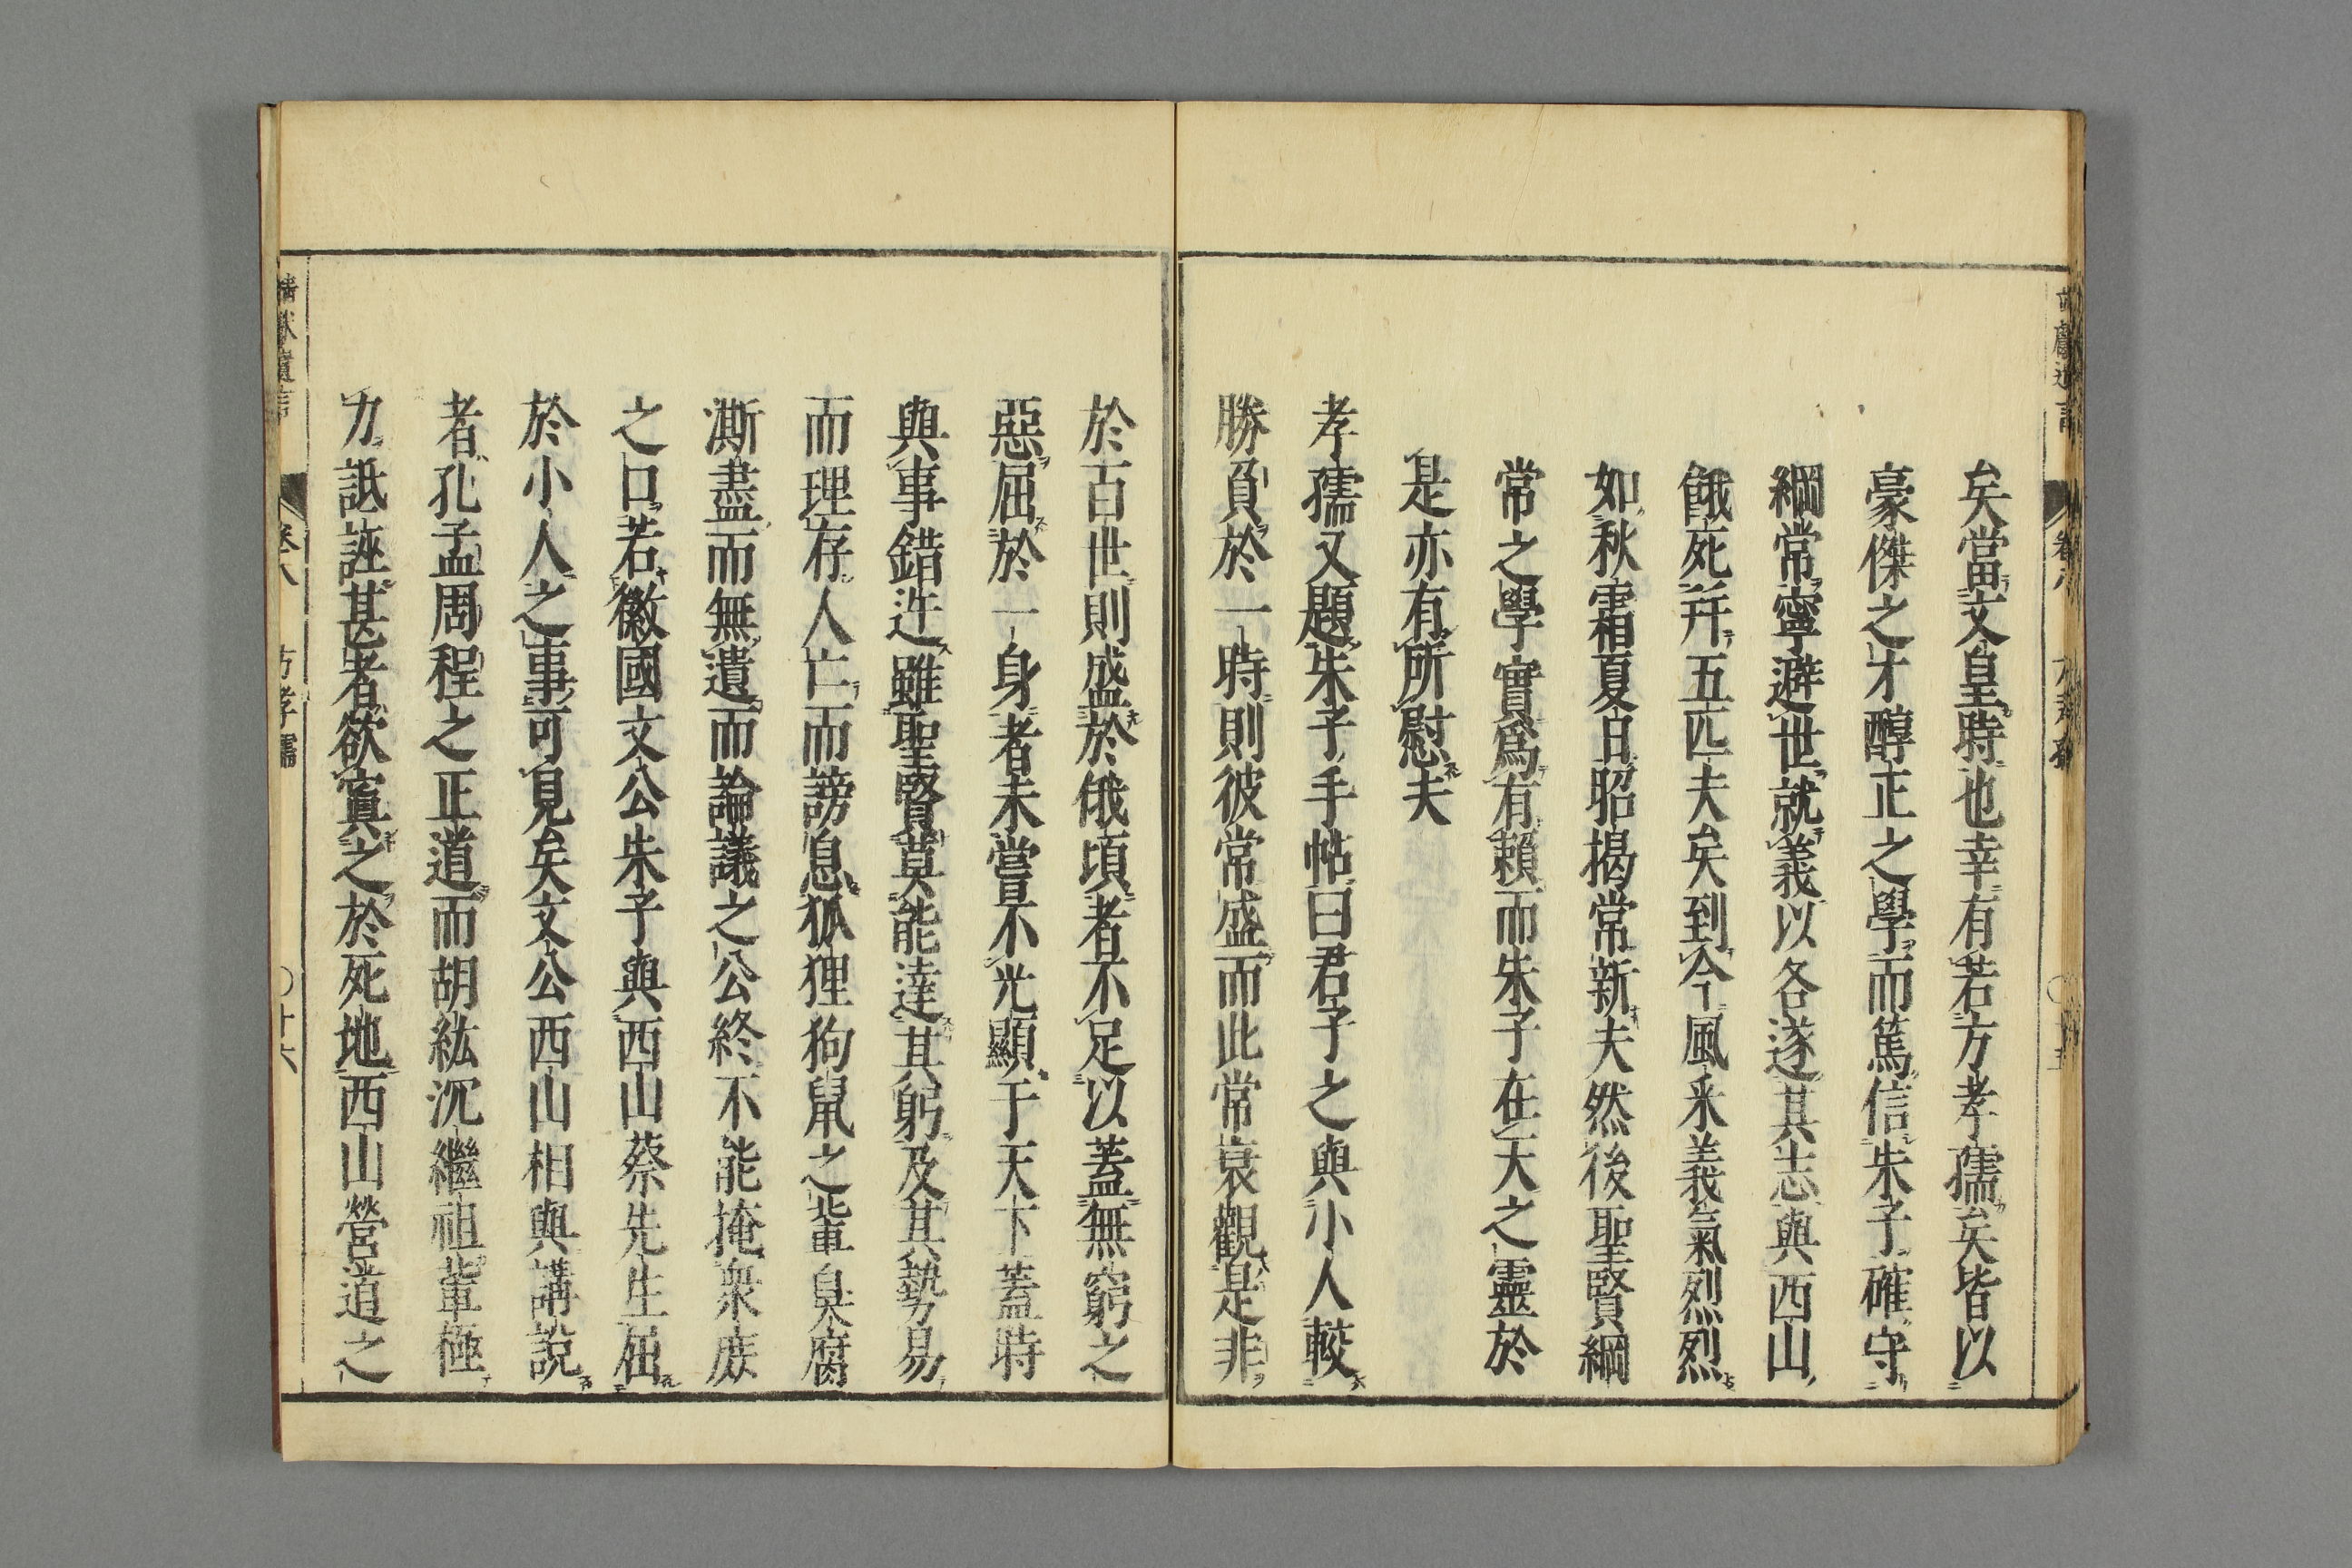 矣當文皇時也幸有若方孝孺矣皆以
豪傑之才醇正之學而篤信朱子確守
綱常寧避世就義以各遂其志與西山
餓死幷五匹夫矣到今風釆義氣烈烈
如秋霜夏日昭揭常新夫然後聖賢綱
常之學實爲有賴而朱子在天之靈於
是亦有所慰夫
孝孺又題朱子手帖曰君子之與小人較
勝負於一時則彼常盛而此常衰觀是非
於百世則盛於俄頃者不足以蓋無窮之
惡屈於一身者未嘗不光顯于天下蓋時
與事錯迕雖聖賢莫能達其躬及其勢易
而理存人亡而謗息狐狸狗鼠之輩臭腐
澌盡而無遺而論議之公終不能掩衆庶
之口若徽國文公朱子與西山蔡先生屈
於小人之事可見矣文公西山相與講說
者孔孟周程之正道而胡紘沉繼祖輩極
力詆誣甚者欲寘之於死地西山營道之
靖献遺言 卷八 方孝孺 〇十六